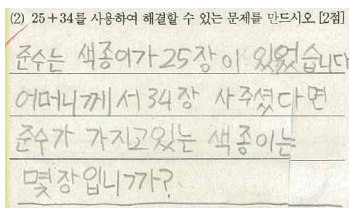 (2) 25+34를 사용하여 해결할 수 있는 문제를 만드시오. [2점]
준수는 색종이가 25장이 있었습니다
어머니께서 34장 사주셨다면
준수가 가지고있는 색종이는
몇장입니까?